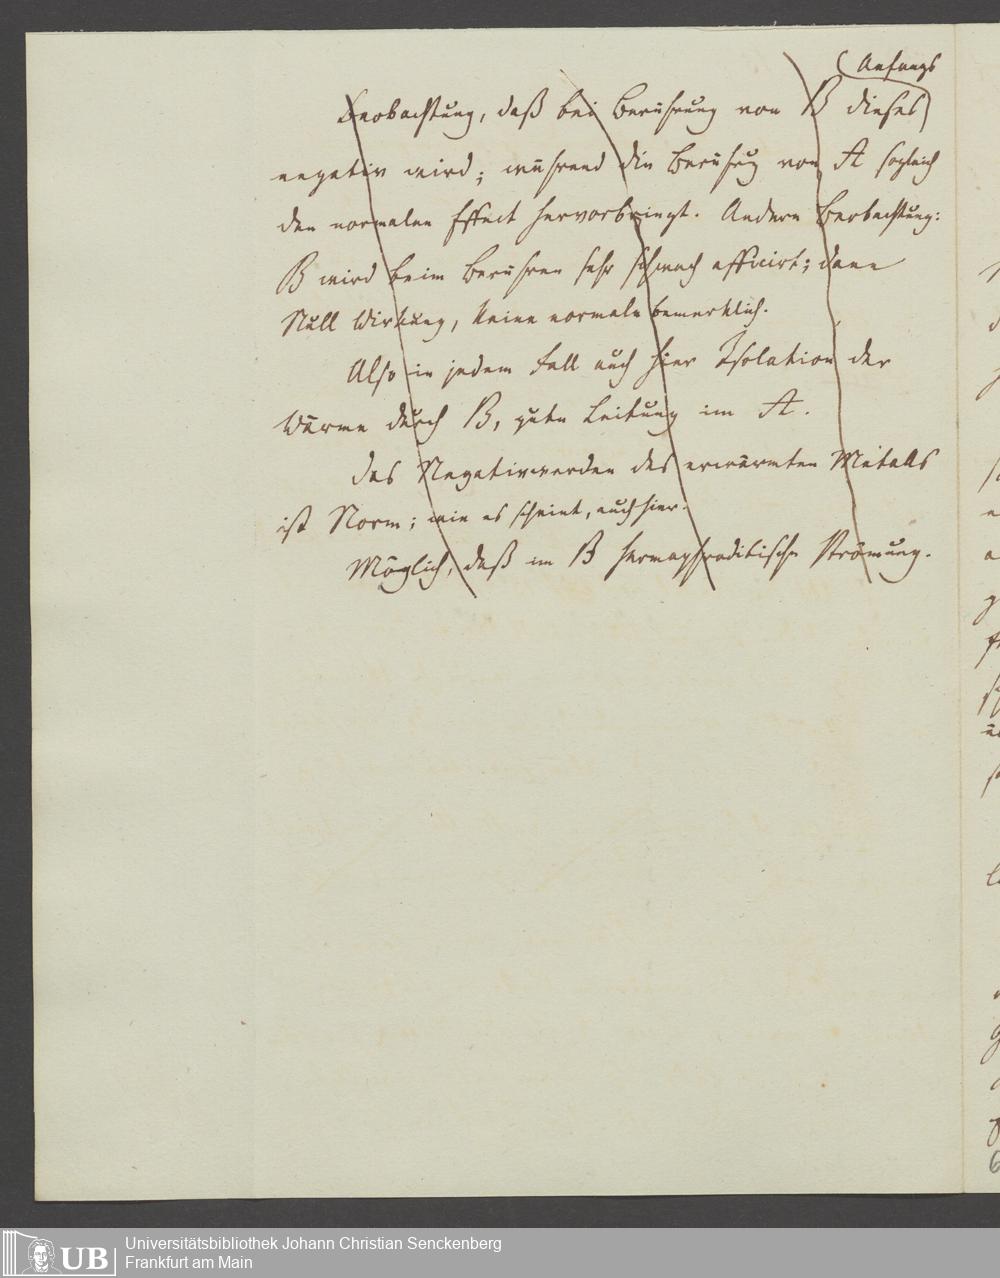 Anfangs
Beobachtung, daß bei Berührung von B dieses
negativ wird; während die Berührung von A sogleich
den normalen Effect hervorbringt. Andere Beobachtung:
B wird beim Berühren sehr schwach afficirt; dann
Null Wirkung, keine normale bemerklich.
Also in jedem Fall auch hier Isolation der
Wärme durch B, gute Leitung im A.
Das Negativwerden des erwärmten Metalls
ist Norm; wie es scheint, auch hier.
Möglich, daß im B hermaphroditische Strömung.
UB
Universitätsbibliothek Johann Christian Senckenberg
Frankfurt am Main